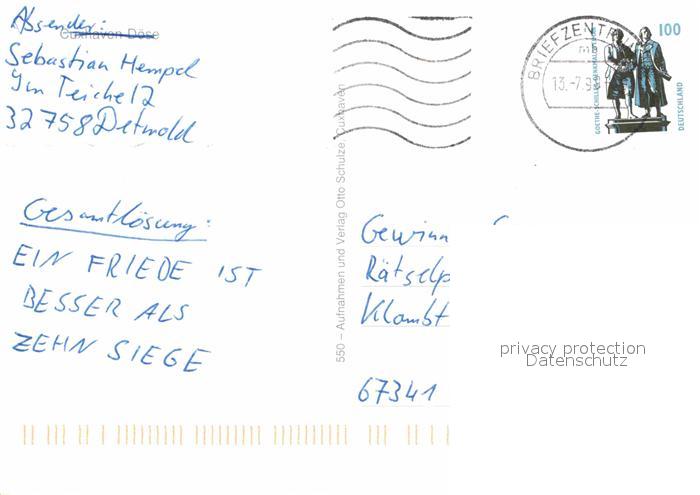 Absender:
Cuxhaven Döse
Sebastian Hempel
Im Teiche 12
32758 Detmold
Gesamtlösung:
EIN FRIEDE IST
BESSER ALS
ZEHN SIEGE
550 – Aufnahmen und Verlag Otto Schulze, Cuxhaven
BRIEFZENTR
mb
13.-7.98
100
GOETHE-SCHILLER-DENKMAL
DEUTSCHLAND
Gewinn
Rätselp
Klambt
67341
privacy protection
Datenschutz